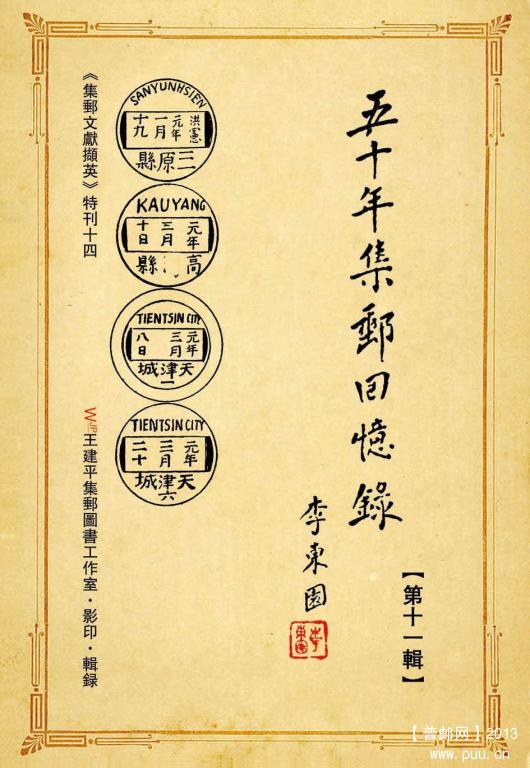 五十年集郵回憶錄
李東園
【第十一輯】
SANYUNHSIEN
洪憲
元年
一月
十九
三原縣
KAUYANG
元年
三月
十日
高 縣
TIENTSIN CITY
元年
三月
八日
天津城
一
TIENTSIN CITY
元年
三月
二十
天津城
六
《集郵文獻擷英》特刊十四
王建平集郵圖書工作室·影印·輯録
【普邮网】2013
www.puu.cn